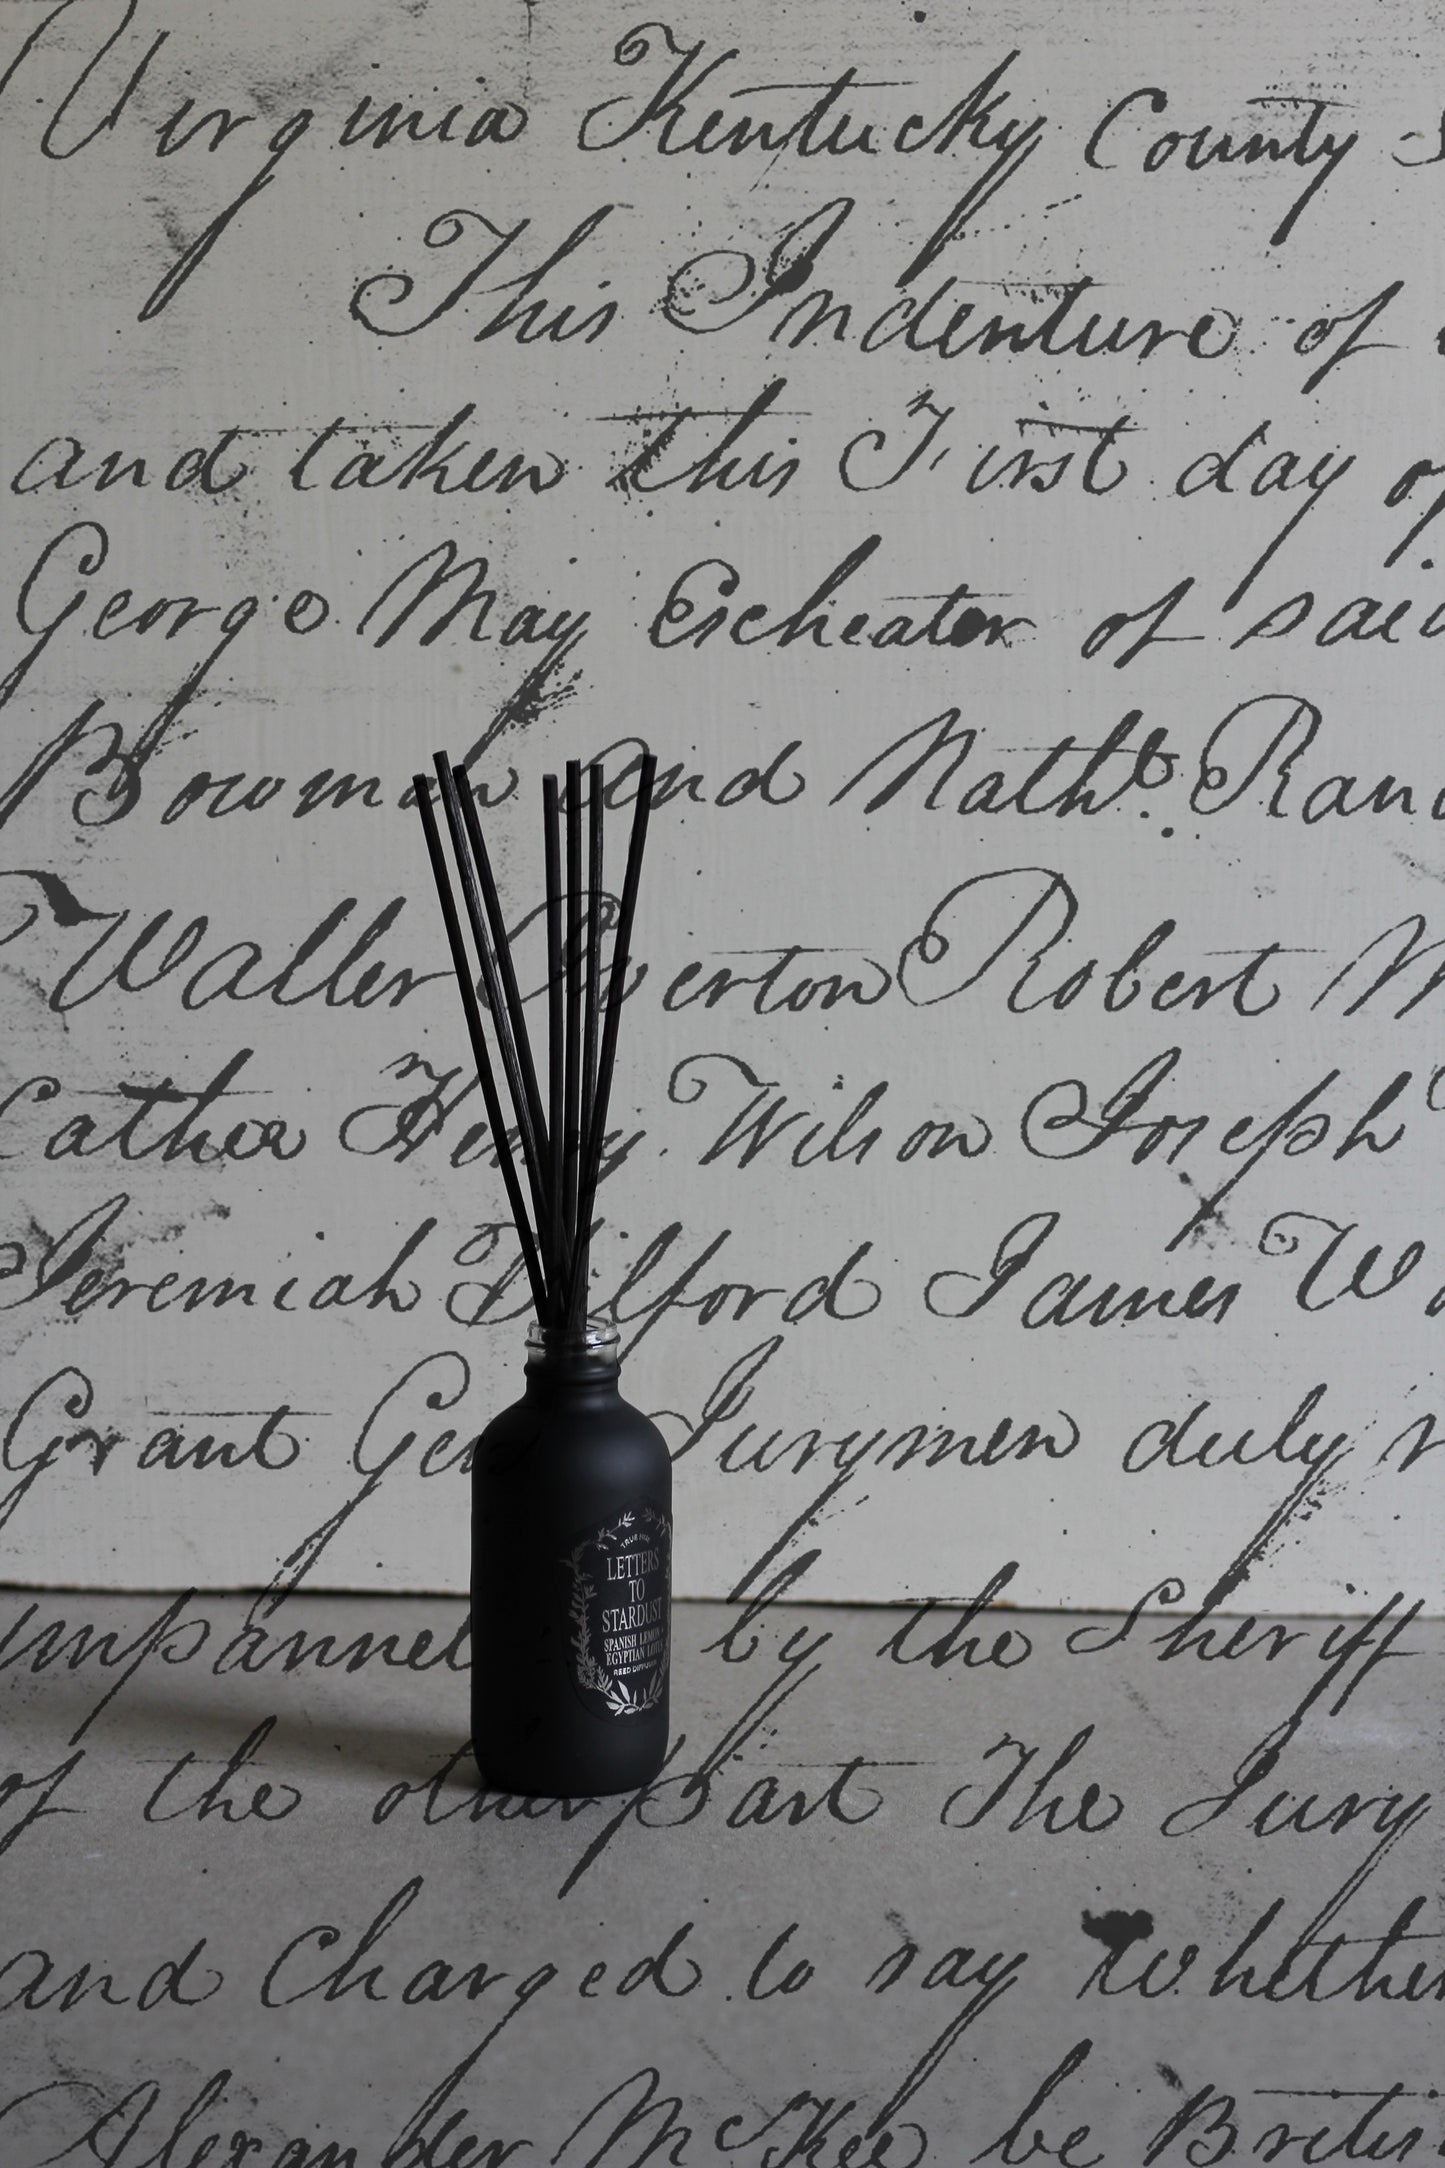 Virginia Kentucky County
This Indenture of
and taken this First day of
George May Escheator of said
Bowman and Nath.
Waller Overton Robert
Cather Henry Wilson Joseph
Jeremiah Tilford James
Grant Jurymen duly
by the Sheriff
of the other part The Jury
and Charged to say Whether
Alexander McKee be
LETTERS
TO
STARDUST
SPANISH LEMON
EGYPTIAN LOTUS
REED DIFFUSER